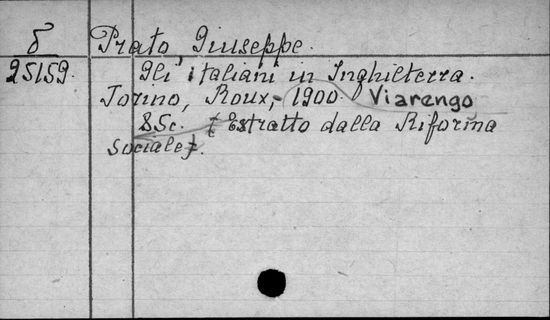 δ Prato Giuseppe.
25159. Gli italiani in Inghilterra.
Torino, Roux, - 1900. Viarengo
8Sc. [Estratto dalla Riforma
sociale].